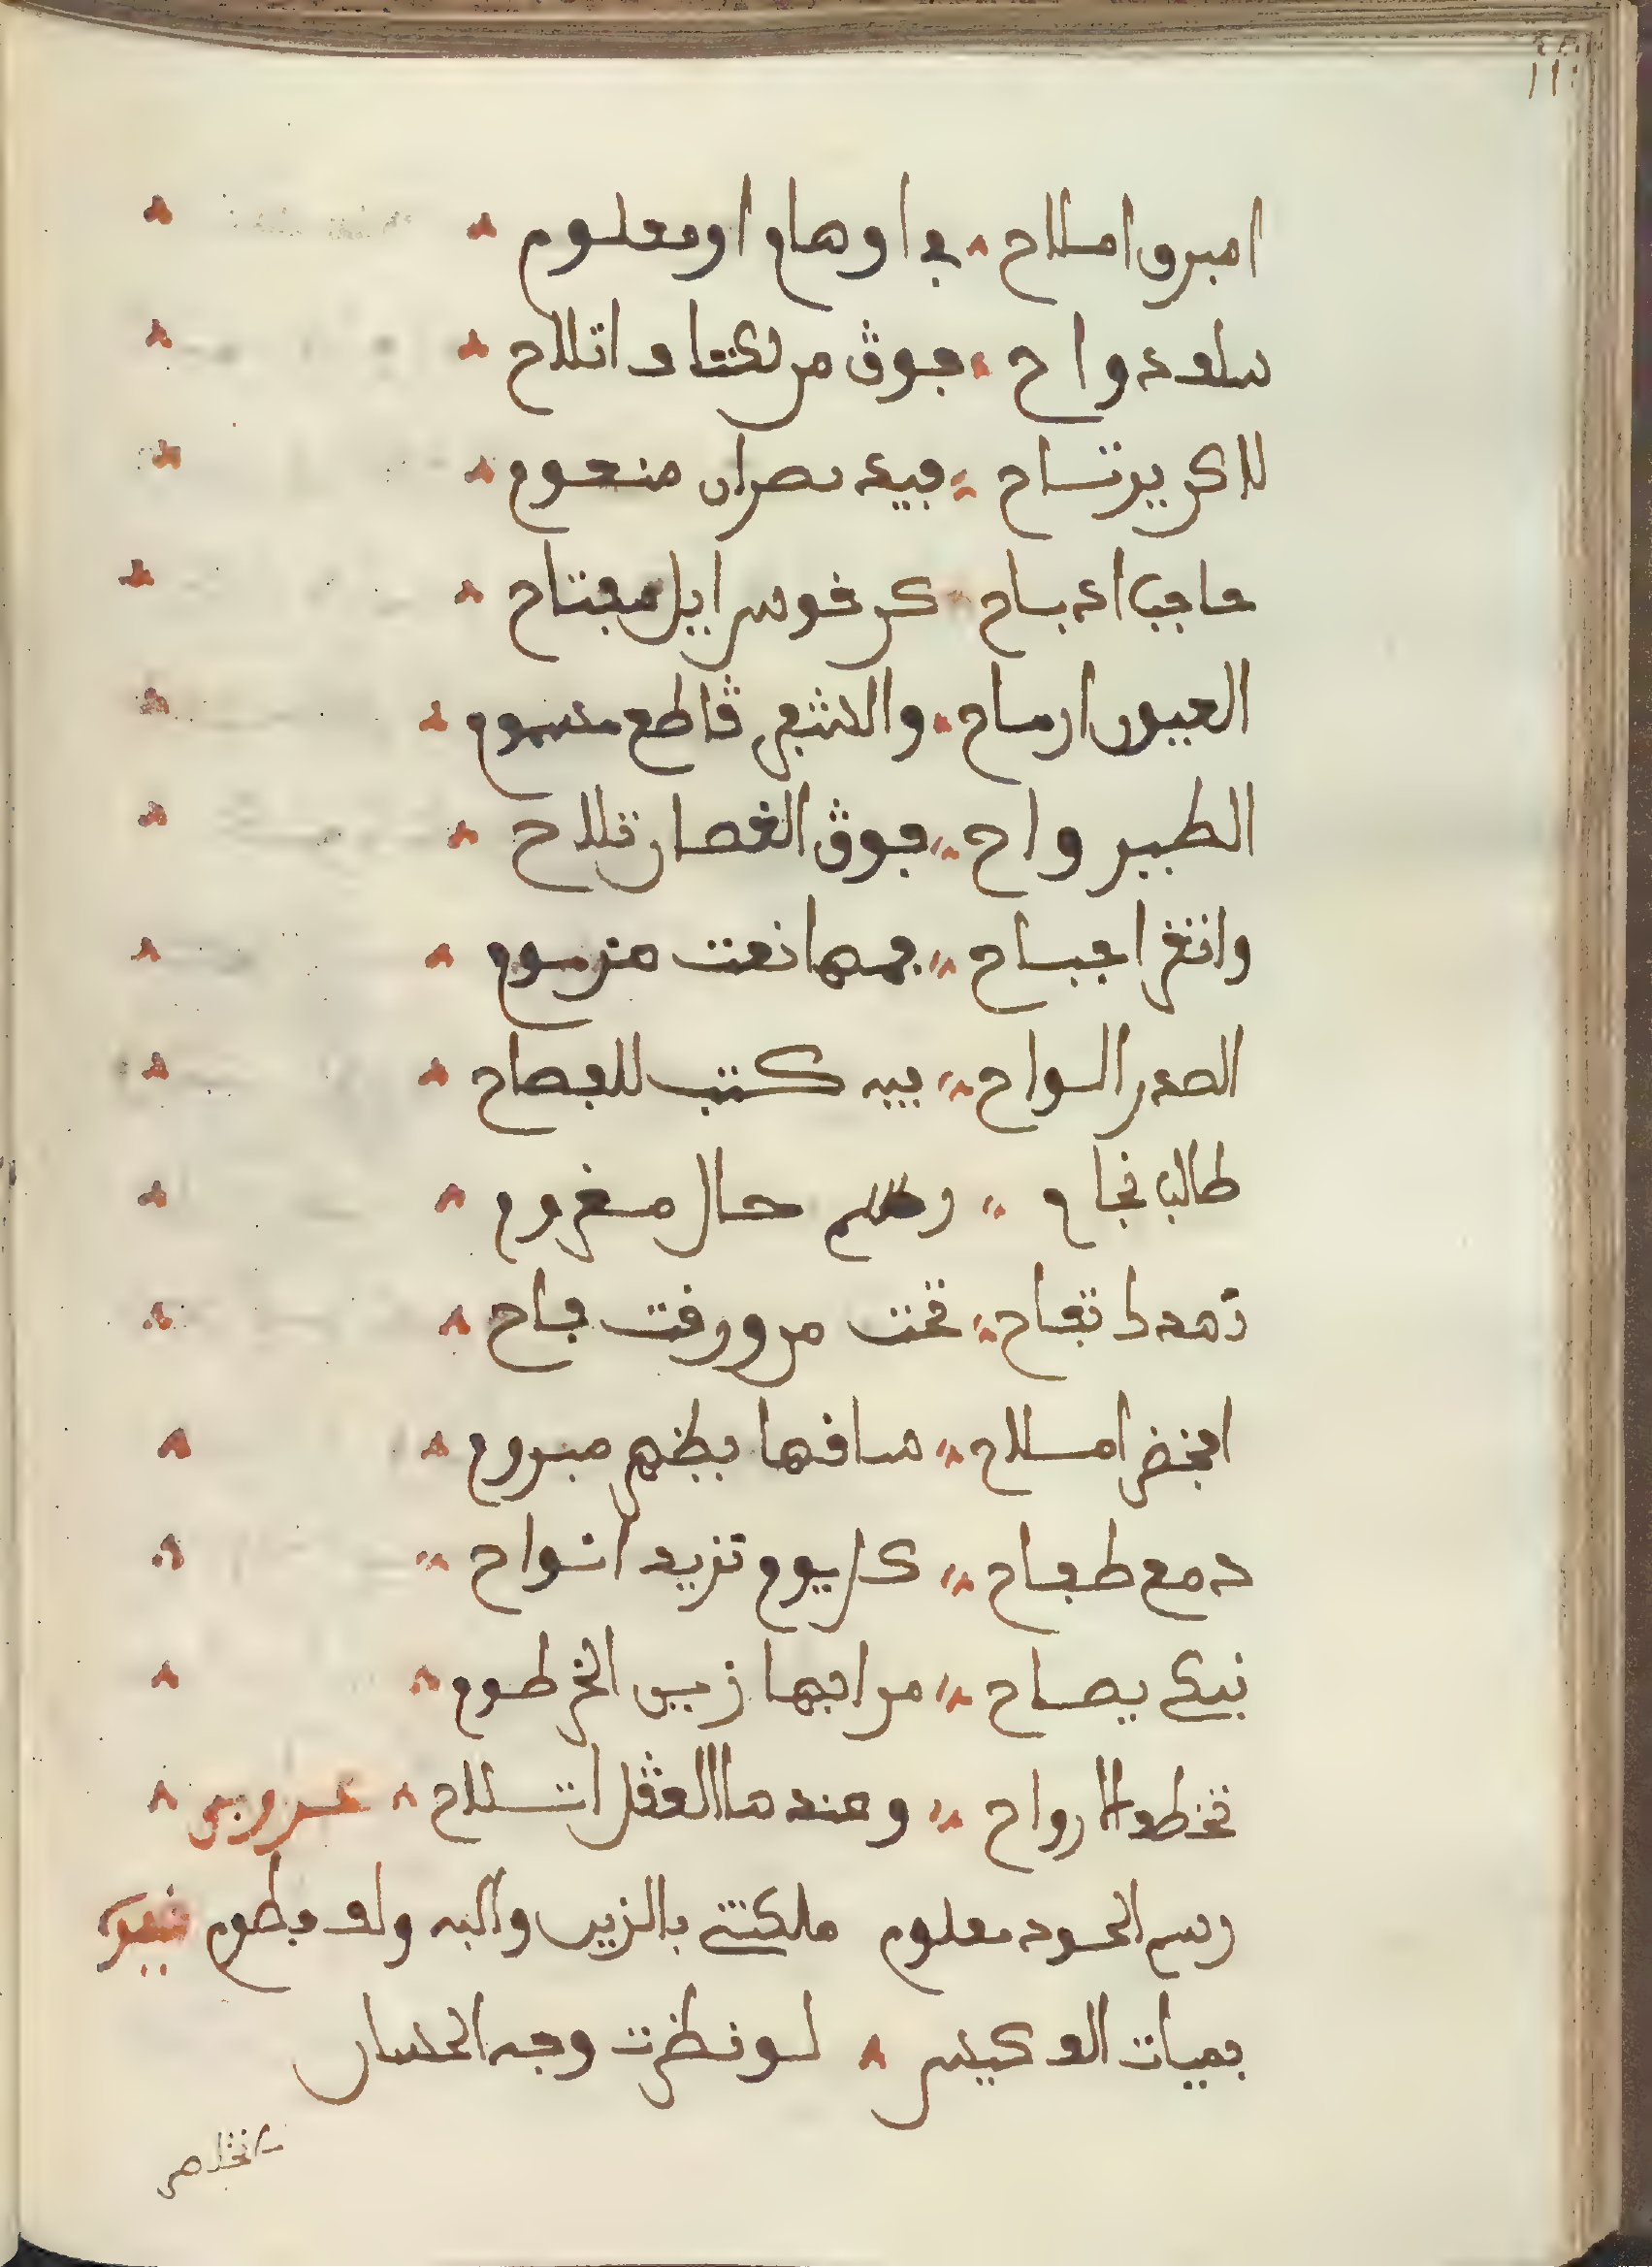 امبرو امسلاح في اوهام او معلوم
سلف دواح فوق من لكتاف اتللاح
للاكن يرتساح فيه نصران منعوم
حاجب ادباح كن قوس ايل مفتاح
العيون ارماح والشفر قاطع مسموم
الطير واح فوق الغصان تللاح
وانغر اجباح فمها نعت مرسوم
الصدر الواح فيه كتب للفصاح
طالب نجاح حال مغروم
نهد تفاح تحت من ورقت فاح
افخض امسلاح ساقها بظهر مبروم
دمع طفاح كل يوم تزيد انواح
نبكي يصاح من افها زين الخرطوم
تخطف الارواح وعندها العقل اتسلاح عروبي
رسم الخود معلوم ملكتني بالزين والبه ولف فطوم
بميات الف كيس لو نظرت وجه الحسان
١١